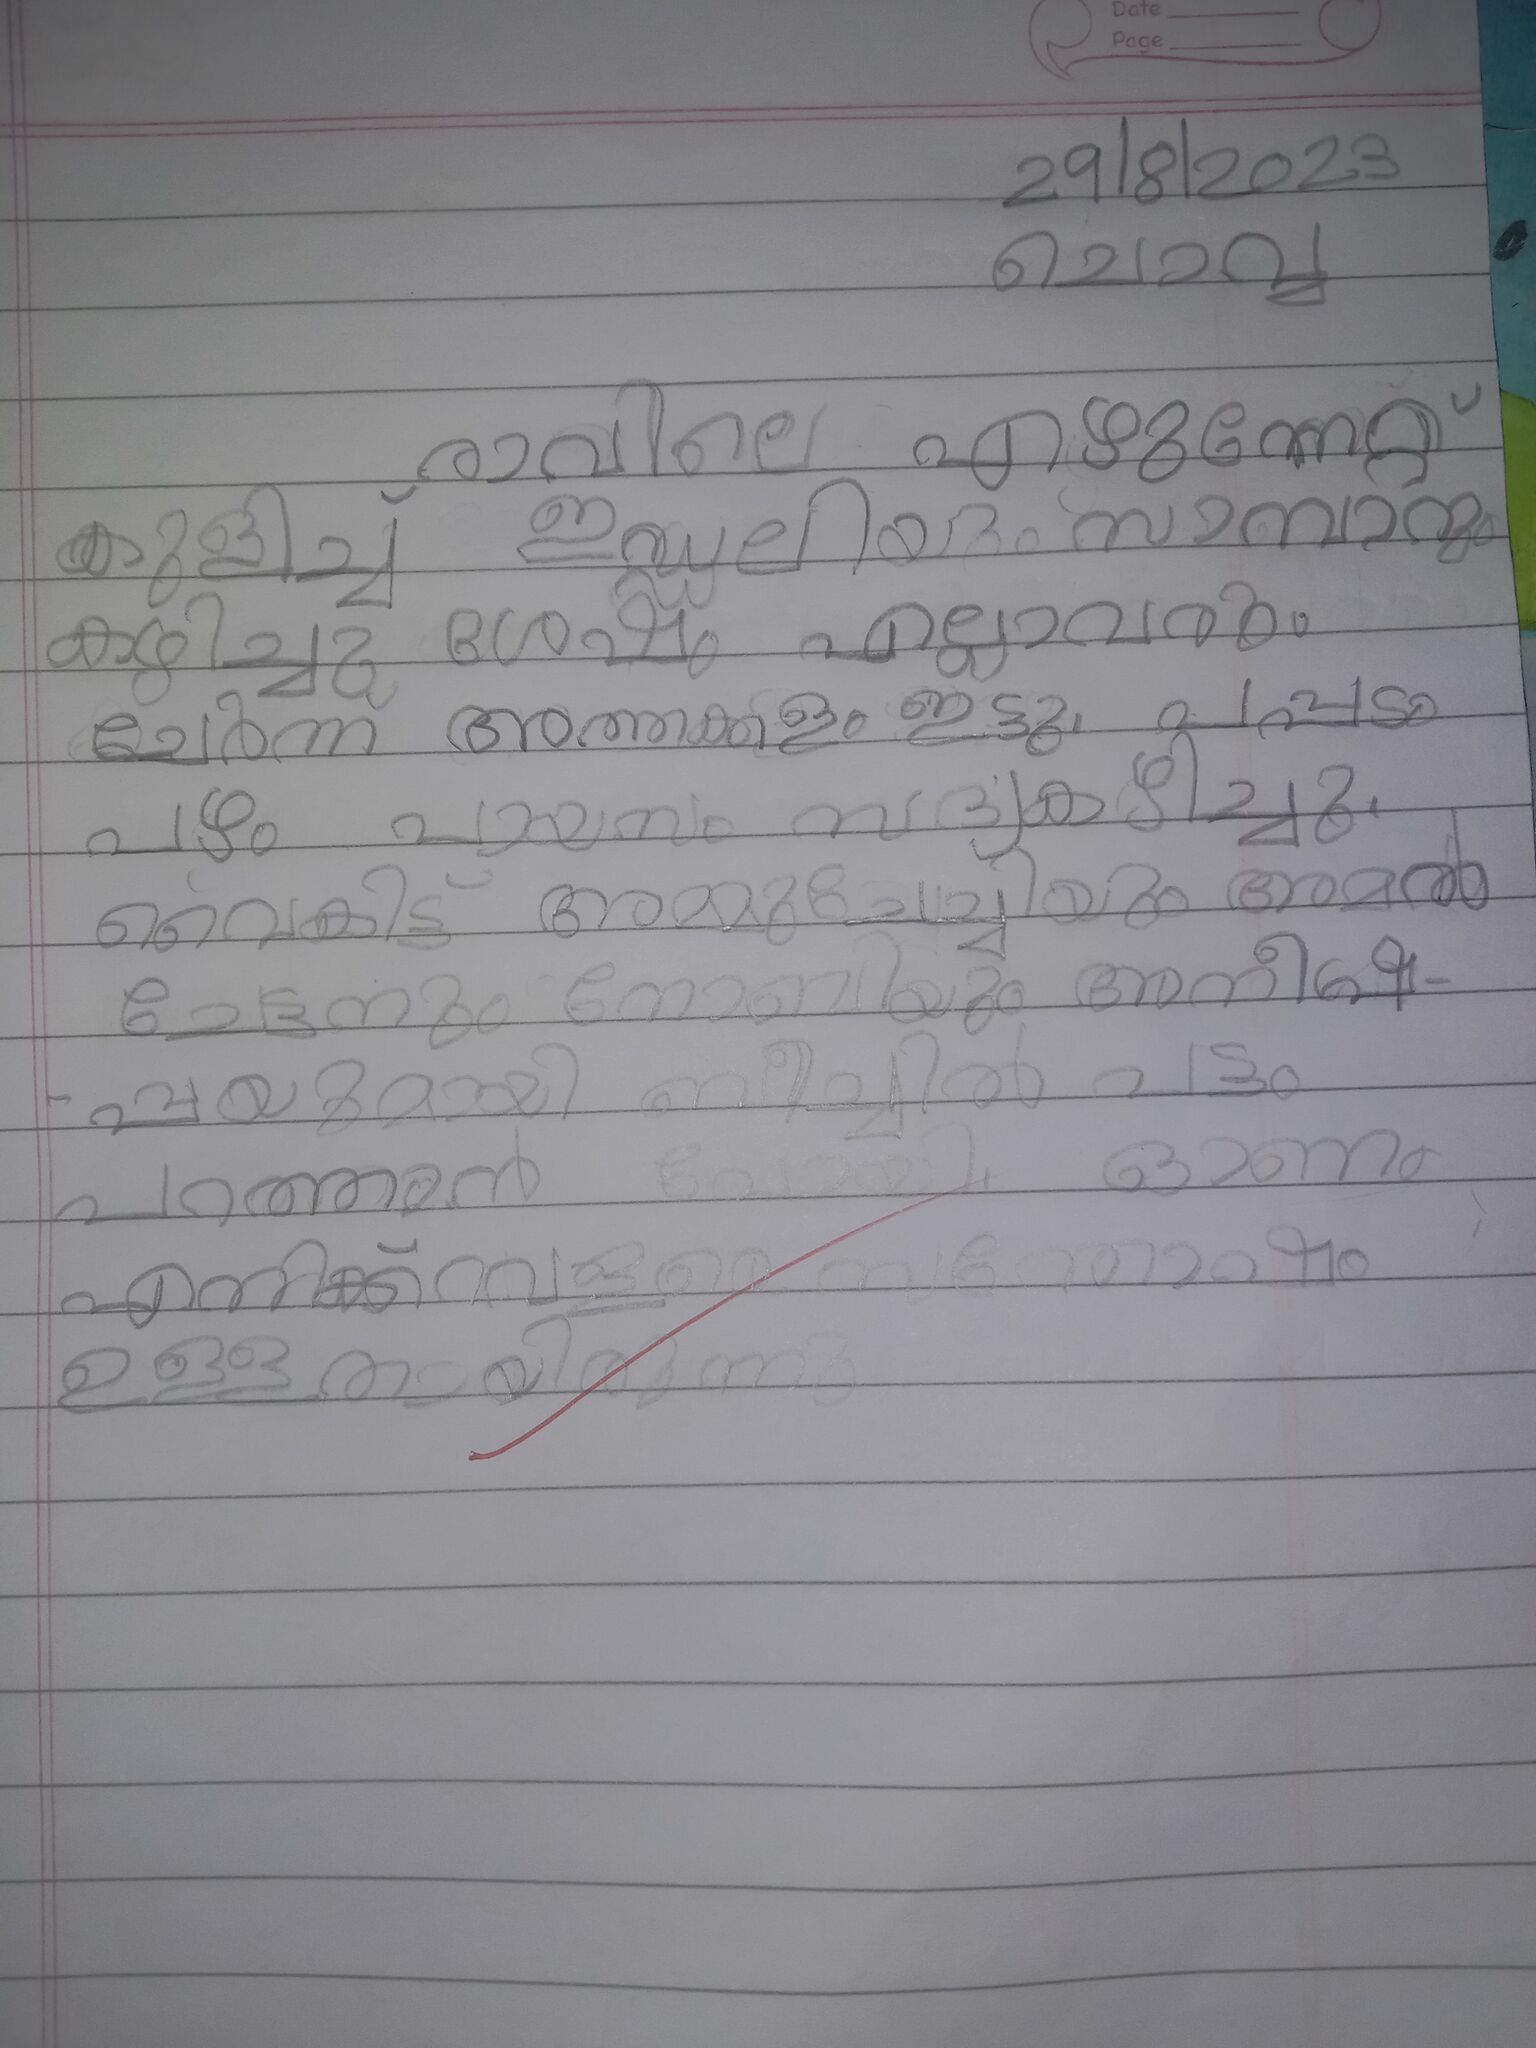 Date
Page
29/8/2023
ചൊവ്വ
രാവിലെ എഴുന്നേറ്റ്
കുളിച്ച് ഇഡ്ഡലിയും സാമ്പാറും
കഴിച്ചു ശേഷം എല്ലാവരും
ചേർന്ന് അത്തക്കളം ഇട്ടു. പപ്പടം
പഴം പായസം സദ്യ കഴിച്ചു.
വൈകിട്ട് അമ്മുചേച്ചിയും അമൽ
ചേട്ടനും നോബിയും
പട്ടം
പറത്താൻ പോയി. ഓണം
എനിക്ക് വളരെ സന്തോഷം
ഉള്ളതായിരുന്നു